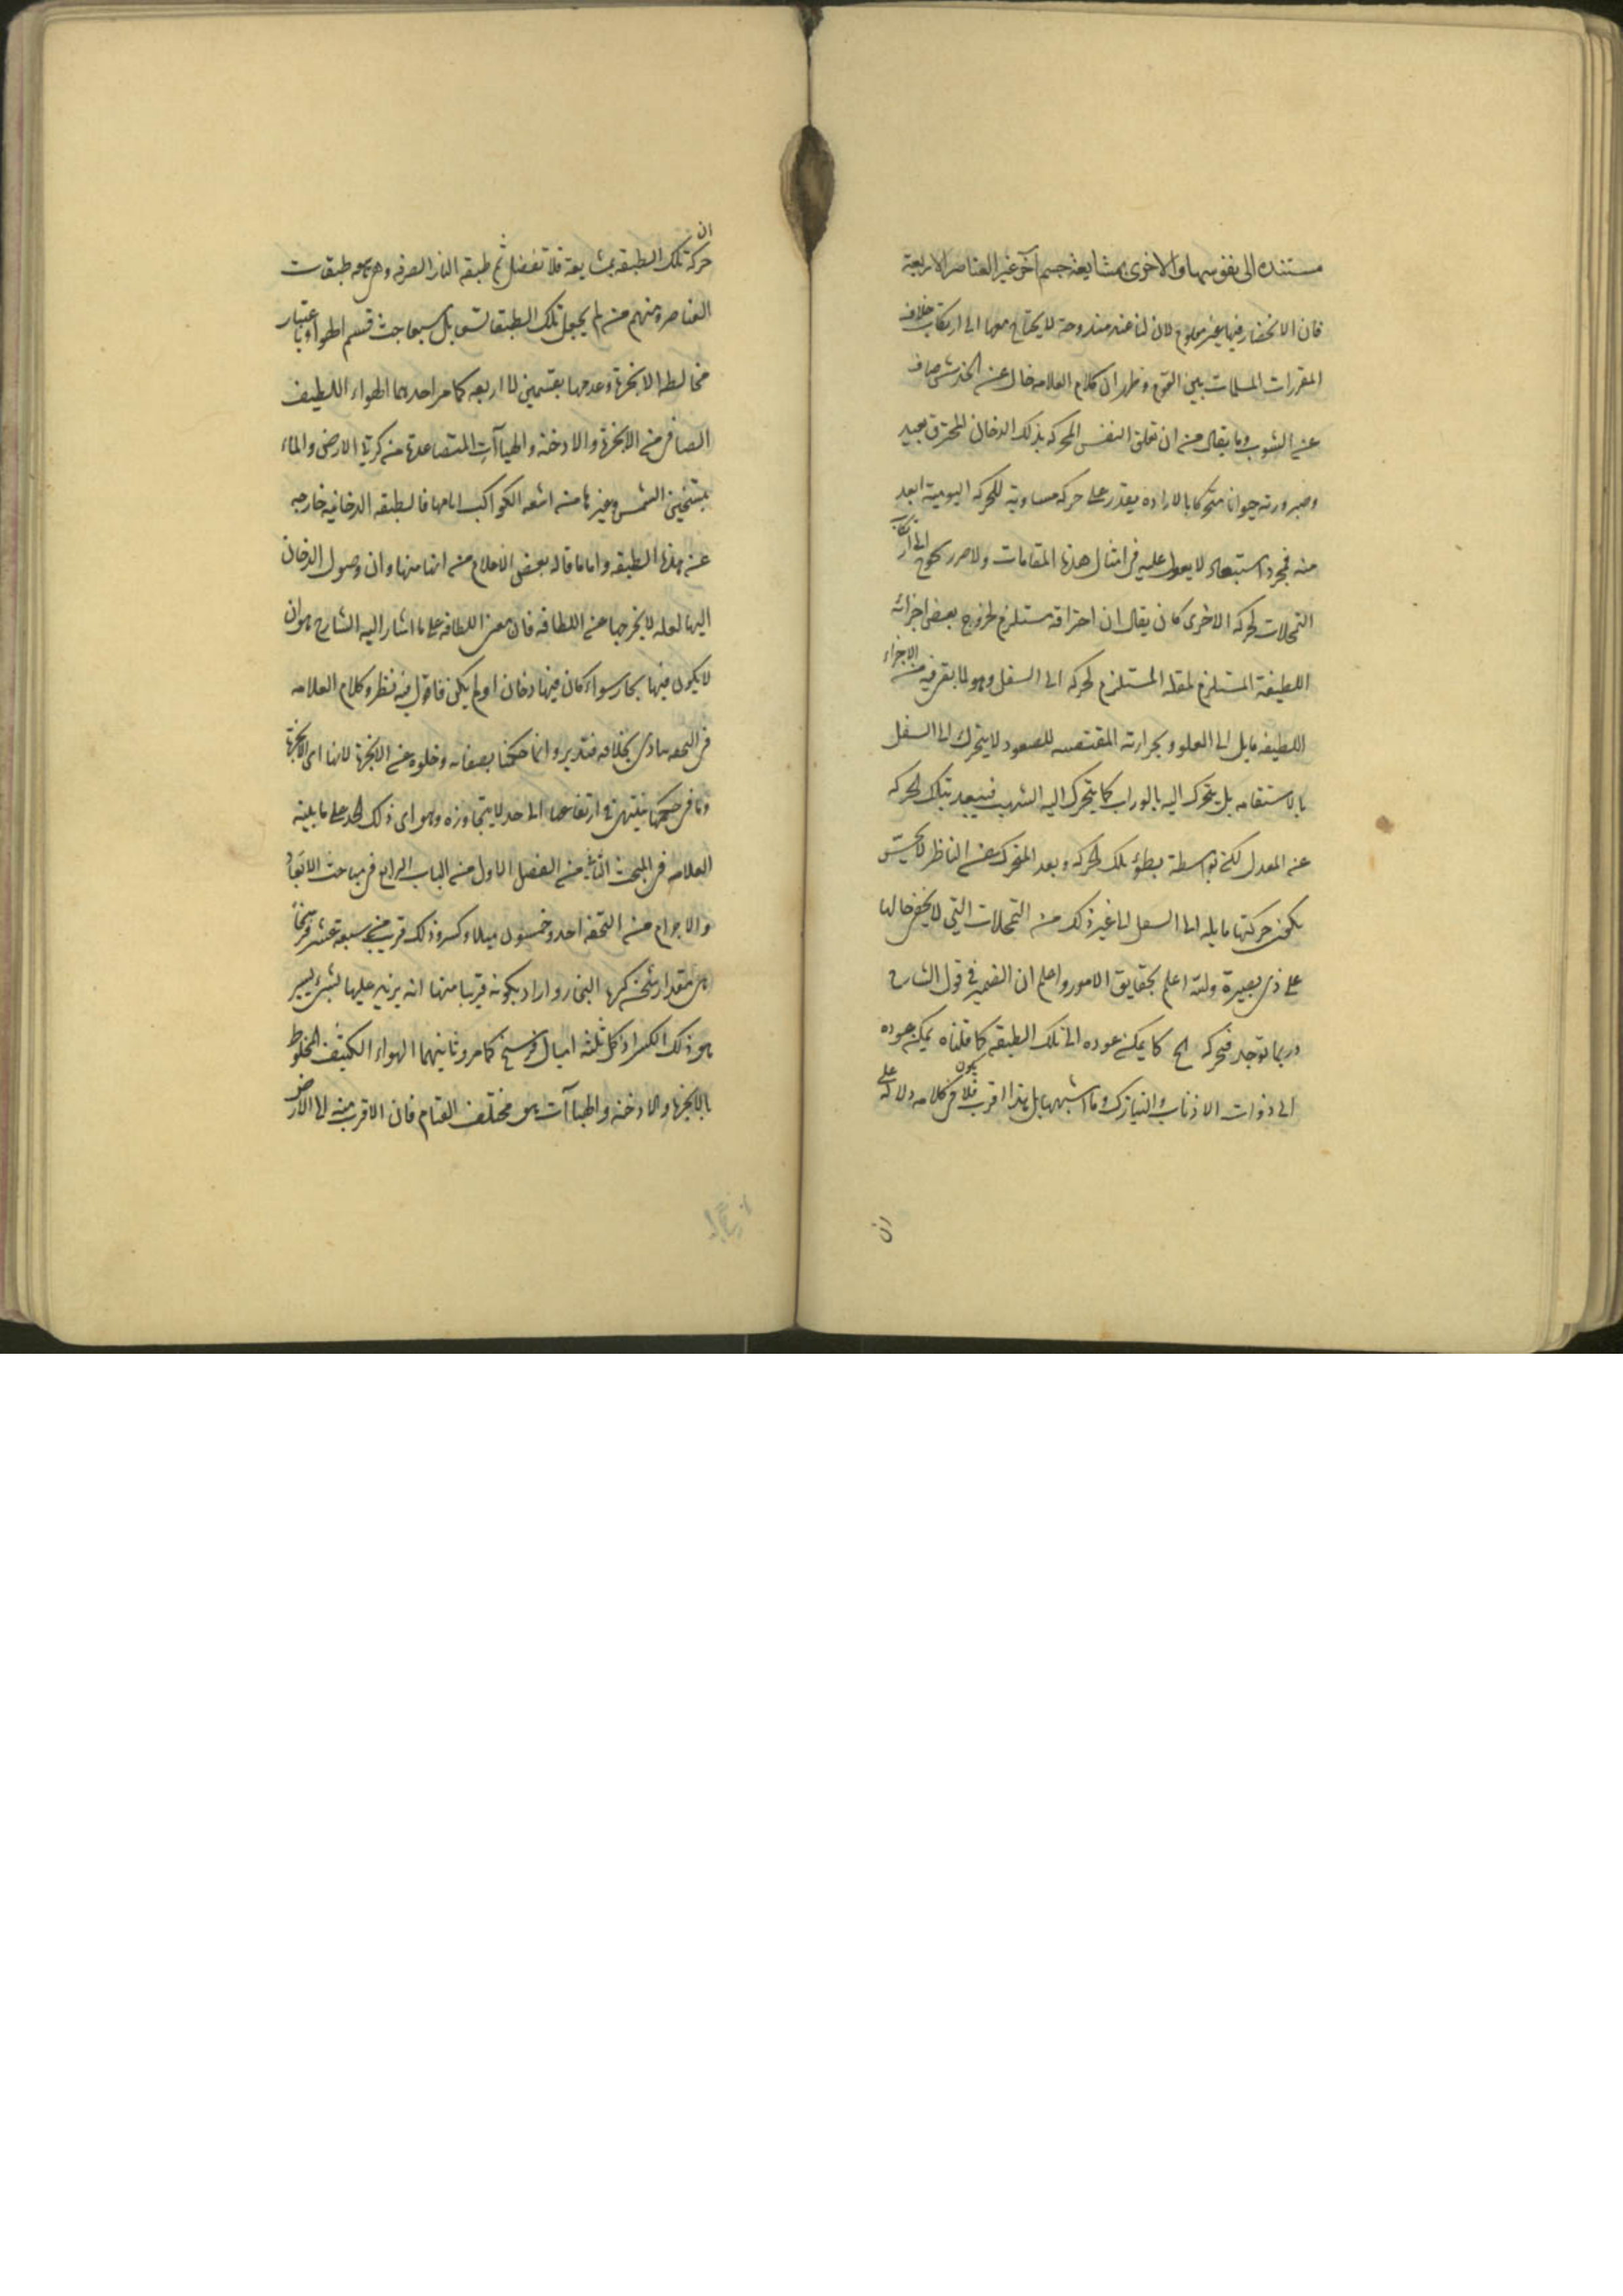 مستنده الى نفوسها والاخرى بمشايعة جسم آخر غير العناصر الاربعة
فان الانحصار فيها غير معلوم لان لنا عنه مندوحة لا يحتاج معها الى ارتكاب خلاف
المقررات المسلمات بين القوم وظهر ان كلام العلامه خال عن الخدش صاف
عن الشوب وما يقال من ان تعلق النفس المحركه بذلك الدخان المحترق بعيد
وصيرورته حيوانا متحركا بالاراده يقدر على حركه مساوية للحركه اليومية ابعد
منه فمجرد استبعاد لا يعول عليه فى امثال هذه المقامات ولا ضرر الى ارتكاب
التمحلات لحركه الاخرى كان يقال ان احتراقه مستلزم لخروج بعض اجزائه
اللطيفة المستلزم لثقله المستلزم لحركه الى السفل وهو لما بقى فيه من الاجزاء
اللطيفه مايل الى العلو وبحرارته المقتضيه للصعود لا يتحرك الى السفل
بالاستقامه بل يتحرك اليه بالوراب كما يتحرك اليه الشهب فيبعد بتلك الحركه
عن المعدل لكن بواسطة بطؤ تلك الحركه وبعد المتحرك عن الناظر لا يحس
بكون حركتها مايله الى السفل الى غير ذلك من التمحلات التى لا يخفى حالها
على ذى بصيرة والله اعلم بحقايق الامور واعلم ان الضمير فى قول الشارح
وربما توجد فتحركه الخ كما يمكن عوده الى تلك الطبقه كما قلناه يمكن عوده
الى ذوات الاذناب والنيازك وما اشبهها بل هذا اقرب فلا يكون فى كلامه دلالة على
ان
ان
حركة تلك الطبقه بمشايعة فلا تغفل ثم طبقه النار الصرفه وهى تاسعه طبقات
العناصر ومنهم من لم يجعل تلك الطبقات تسعا بل سبعا حيث قسم الهواء باعتبار
مخالطه الابخرة وعدمها بقسمين لا اربعه كما مر احدهما الهواء اللطيف
الصافى من الابخرة والادخنه والهباآت المتصاعدة من كرتى الارض والماء
بتسخين الشمس وغيرها من اشعه الكواكب اياها فالطبقه الدخانيه خارجه
عن هذه الطبقه واما ما قاله بعض الاعلام من انها منها وان وصول الدخان
اليها لعله لا يخرجها عن اللطافه فان معنى اللطافه على ما اشار اليه الشارح هو ان
لا يكون فيها بخار سواء كان فيها دخان او لم يكن فاقول فيه نظر وكلام العلامه
فى التحفه ينادى بخلافه فتدبر وانما حكمنا بصفائه وخلوه عن الابخرة لانها اى الابخرة
وما فى حكمها ينتهى فى ارتفاعها الى حد لا يتجاوزه وهو اى ذلك الحد على ما بينه
العلامه فى المبحث الثانى من الفصل الاول من الباب الرابع فى مباحث الابعاد
والاجرام من التحفه احد وخمسون ميلا وكسر وذلك قريب من سبعة عشر فرسخا
هى مقدار ثخن كرة البخار واراد بكونه قريبا منها انه يزيد عليها بشئ يسير
هو ذلك الكسر اذ كل ثلثه اميال فرسخ كما مر وثانيهما الهواء الكثيف المخلوط
بالابخرة والادخنه والهباآت هو مختلف القتام فان الاقرب منه الى الارض